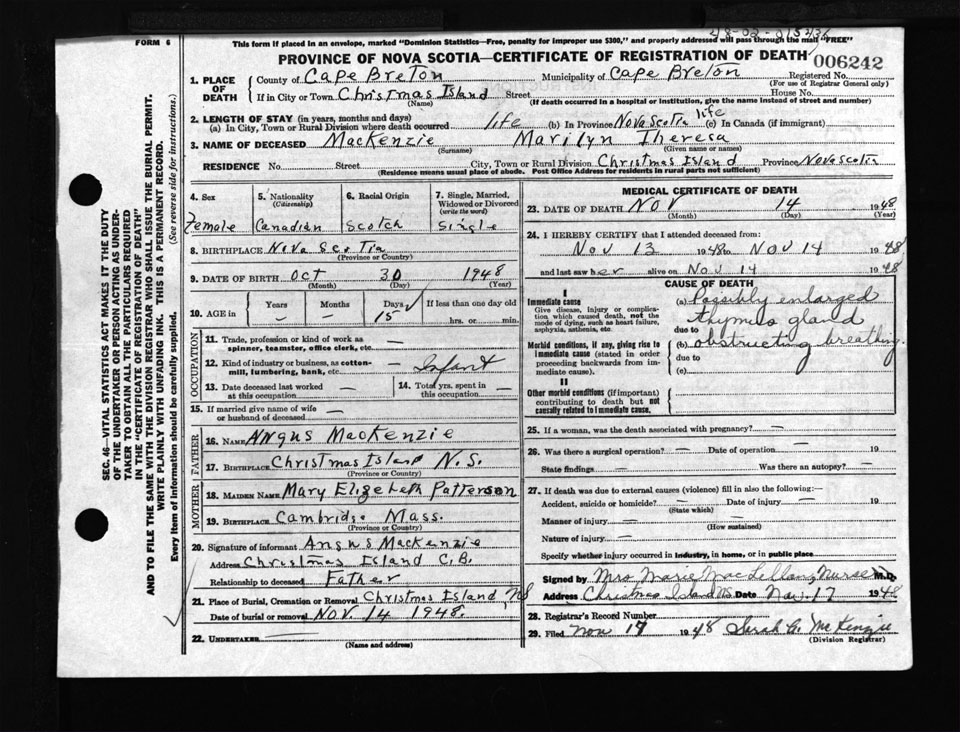 48-02-015436
FORM 6 This form if placed in an envelope, marked "Dominion Statistics—Free, penalty for improper use $300," and properly addressed will pass through the mail "FREE"
PROVINCE OF NOVA SCOTIA—CERTIFICATE OF REGISTRATION OF DEATH 006242
1. PLACE OF DEATH County of Cape Breton Municipality of Cape Breton Registered No.
(For use of Registrar General only)
If in City or Town Christmas Island Street House No.
(Name) (If death occurred in a hospital or institution, give the name instead of street and number)
2. LENGTH OF STAY (in years, months and days)
(a) In City, Town or Rural Division where death occurred life (b) In Province Nova Scotia life (c) In Canada (if immigrant)
3. NAME OF DECEASED MacKenzie Marilyn Theresa
(Surname) (Given name or names)
RESIDENCE No. Street City, Town or Rural Division Christmas Island Province Nova Scotia
(Residence means usual place of abode. Post Office Address for residents in rural parts not sufficient)
4. Sex Female
5. Nationality (Citizenship) Canadian
6. Racial Origin Scotch
7. Single, Married, Widowed or Divorced (write the word) Single
8. BIRTHPLACE Nova Scotia
(Province or Country)
9. DATE OF BIRTH Oct 30 1948
(Month) (Day) (Year)
10. AGE in Years — Months — Days 15 If less than one day old hrs. or min.
OCCUPATION
11. Trade, profession or kind of work as spinner, teamster, office clerk, etc. —
12. Kind of industry or business, as cotton-mill, lumbering, bank, etc. — Infant
13. Date deceased last worked at this occupation —
14. Total yrs. spent in this occupation —
15. If married give name of wife or husband of deceased —
FATHER
16. NAME Angus MacKenzie
17. BIRTHPLACE Christmas Island N.S.
(Province or Country)
MOTHER
18. MAIDEN NAME Mary Elizebeth Patterson
19. BIRTHPLACE Cambridge Mass.
(Province or Country)
20. Signature of informant Angus MacKenzie
Address Christmas Island C.B.
Relationship to deceased Father
21. Place of Burial, Cremation or Removal Christmas Island NS
Date of burial or removal Nov. 14 1948.
22. UNDERTAKER
(Name and address)
MEDICAL CERTIFICATE OF DEATH
23. DATE OF DEATH Nov 14 1948
(Month) (Day) (Year)
24. I HEREBY CERTIFY that I attended deceased from:
Nov 13 1948 to Nov 14 1948
and last saw her alive on Nov 14 1948
CAUSE OF DEATH
I
Immediate cause (a) Possibly enlarged
Give disease, injury or complication, which caused death, not the mode of dying, such as heart failure, asphyxia, asthenia, etc. thymus gland
due to
Morbid conditions, if any, giving rise to immediate cause (stated in order proceeding backwards from immediate cause). (b) obstructing breathing.
due to
(c)
II
Other morbid conditions (if important) contributing to death but not causally related to immediate cause.
25. If a woman, was the death associated with pregnancy? —
26. Was there a surgical operation? — Date of operation — 19
State findings — Was there an autopsy? —
27. If death was due to external causes (violence) fill in also the following:—
Accident, suicide or homicide? — Date of injury — 19
(State which)
Manner of injury —
(How sustained)
Nature of injury —
Specify whether injury occurred in industry, in home, or in public place
Signed by Mrs. Marie MacLellan, Nurse M.D.
Address Christmas Island Date Nov. 17 1948
28. Registrar's Record Number
29. Filed Nov 17 1948 Sarah McKenzie
(Division Registrar)
SEC. 46—VITAL STATISTICS ACT MAKES IT THE DUTY
OF THE UNDERTAKER OR PERSON ACTING AS UNDER-
TAKER TO OBTAIN ALL THE PARTICULARS REQUIRED
IN THE "CERTIFICATE OF REGISTRATION OF DEATH"
AND TO FILE THE SAME WITH THE DIVISION REGISTRAR WHO SHALL ISSUE THE BURIAL PERMIT.
WRITE PLAINLY WITH UNFADING INK. THIS IS A PERMANENT RECORD.
Every item of information should be carefully supplied. (See reverse side for instructions.)